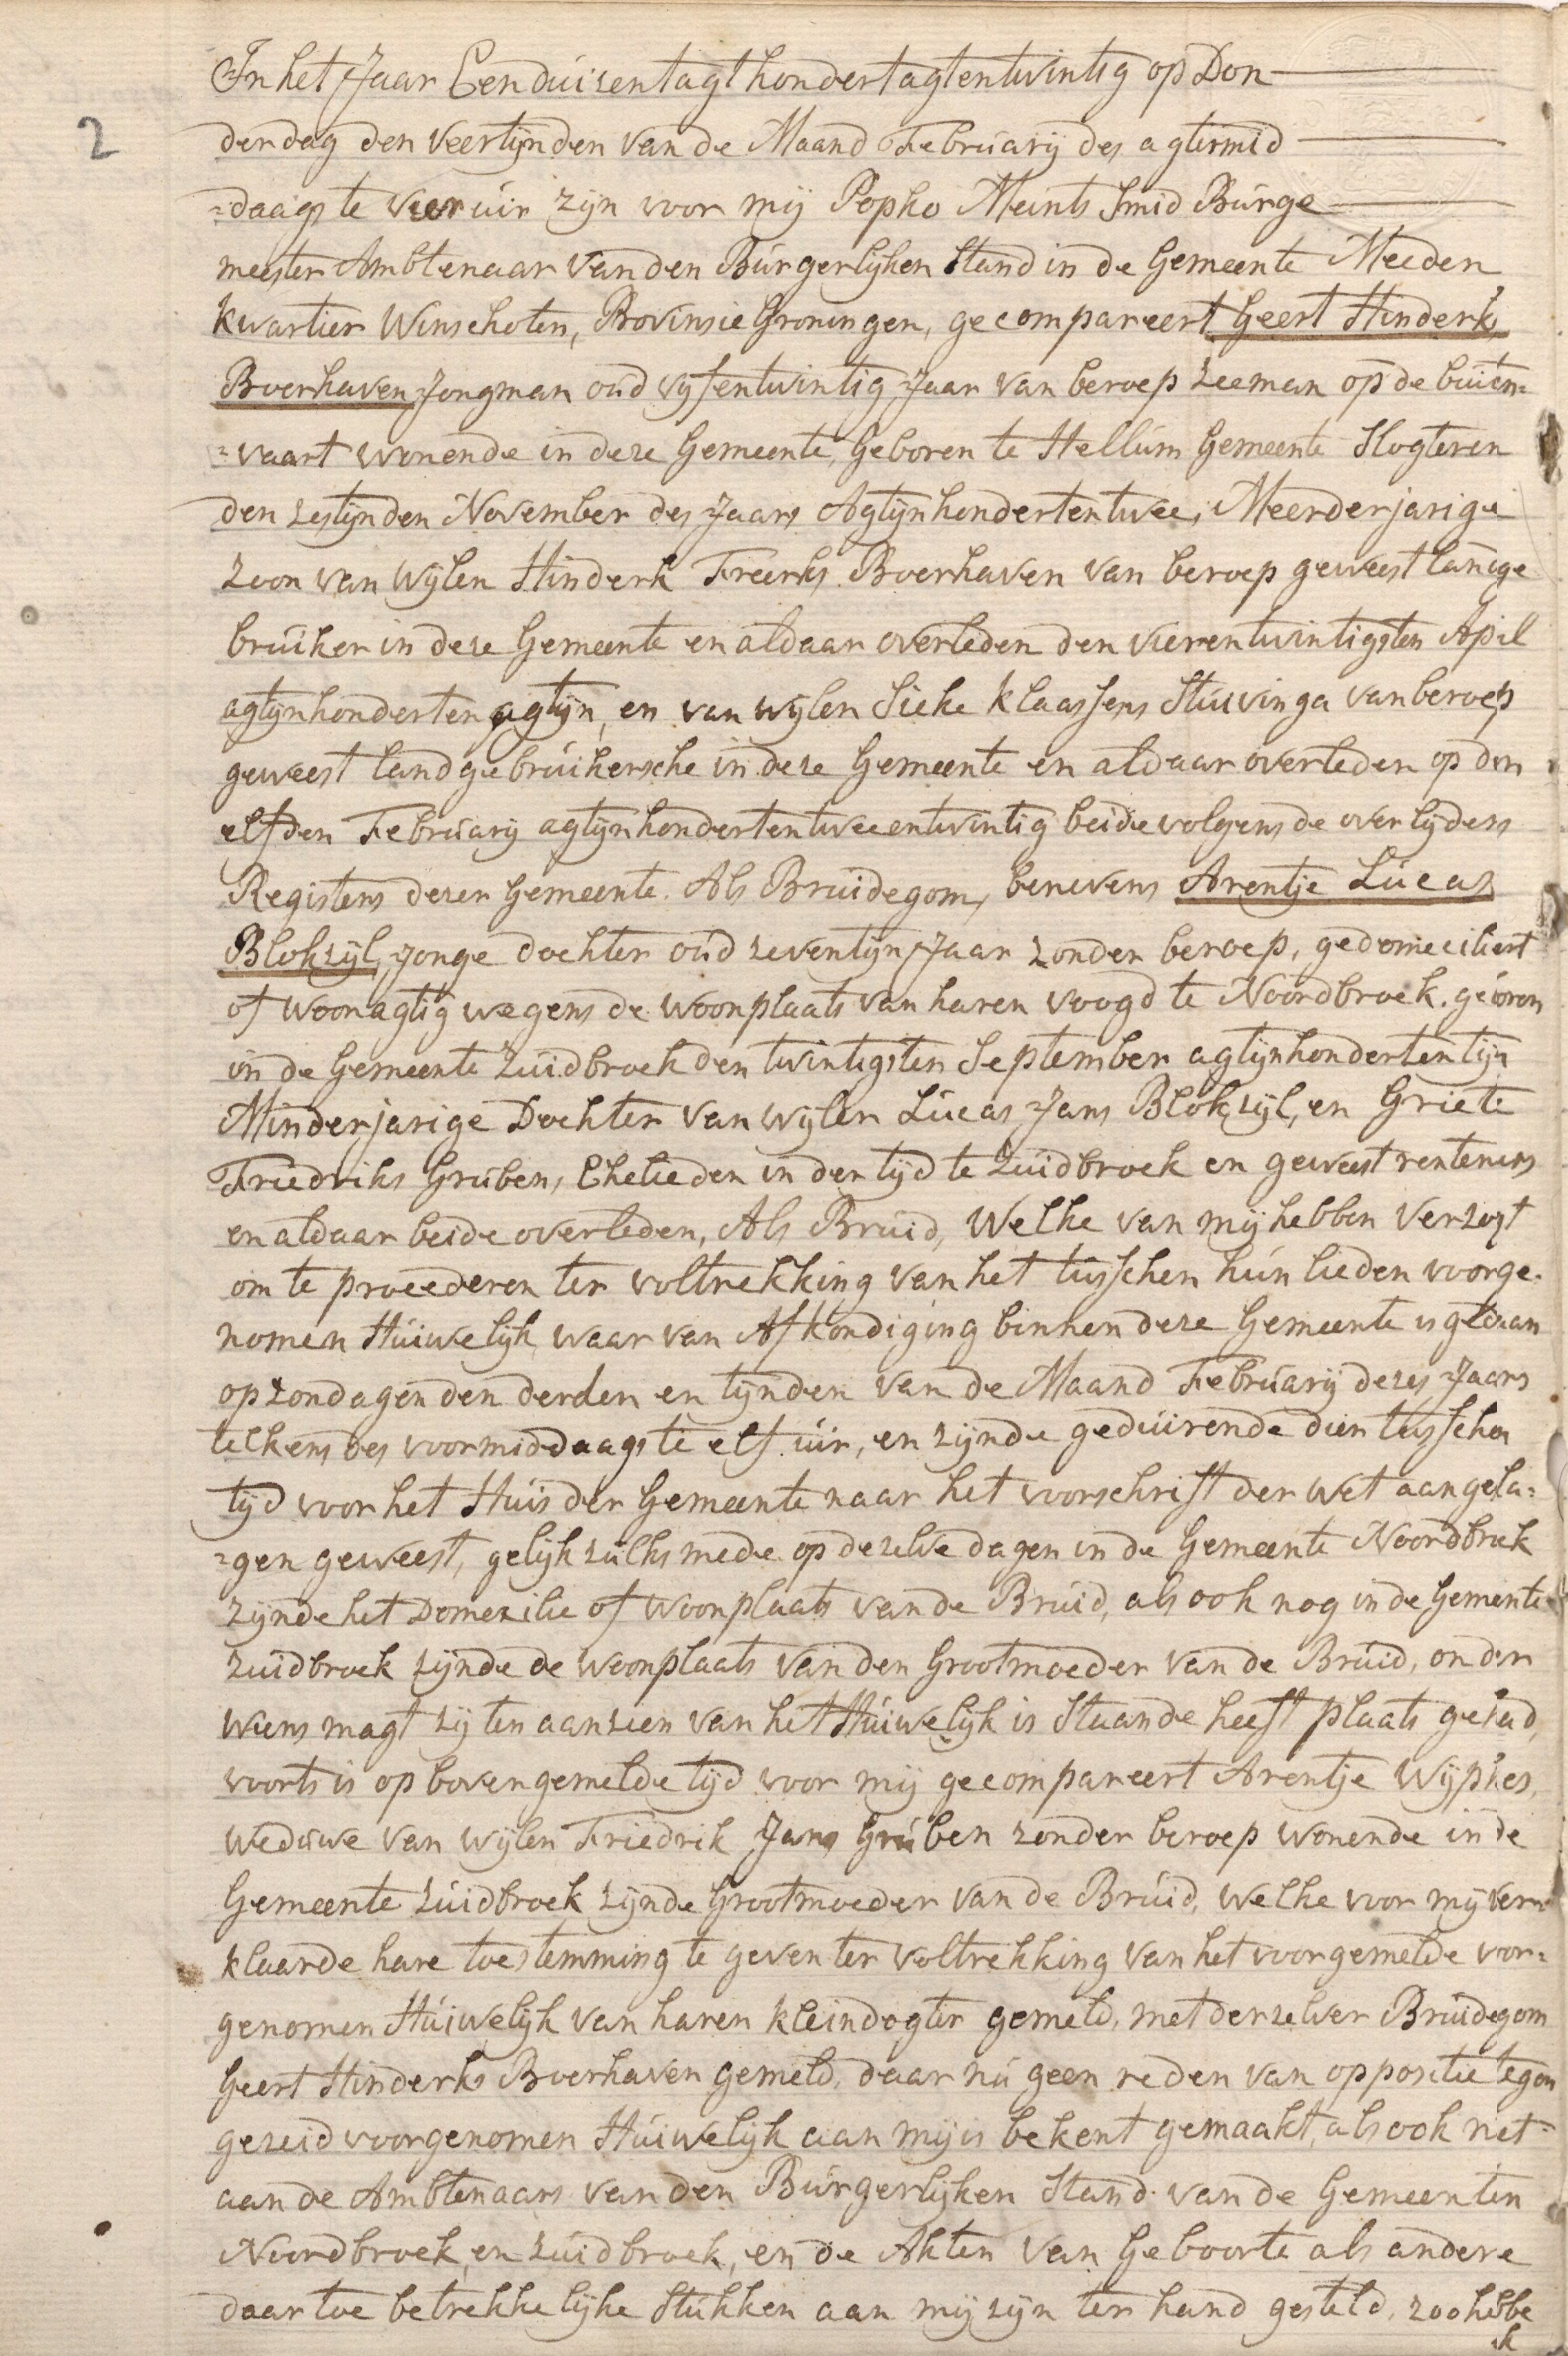 2
In het Jaar Eenduizentagthondertagtentwintig op Don
derdag den veertynden van de Maand February des agtermid
=daags te vier uir zyn voor my Popko Meints Smid Burge
meester Ambtenaar van den Burgerlyken Stand in de Gemeente Meeden
kwartier Winschoten, Provinsie Groningen, gecompareert Geert Hinderks
Boerhaven Jongman oud vyfentwintig Jaar van beroep zeeman op de buiten=
=vaart wonende in deze Gemeente, Geboren te Hellum Gemeente Slogteren
den zestynden November des Jaars Agtynhondertentwee, Meerderjarige
zoon van Wylen Hinderk Freerks Boerhaven van beroep geweest landge
bruiker in deze Gemeente en aldaar overleden den vierentwintigsten Apil
agtynhondertenagtyn, en van wylen Sieke Klaassens Stuivinga van beroep
geweest landgebruikersche in deze Gemeente en aldaar overleden op den
elfden February agtynhondertentweeentwintig beide volgens de overlydens
Registers dezer Gemeente. Als Bruidegom, benevens Arentje Lucas
Blokzyl, jonge dochter oud zeventyn Jaar zonder beroep, gedomeciliert
of woonagtig wegens de woonplaats van haren voogd te Noordbroek. geboren
in de Gemeente Zuidbroek den twintigsten September agtynhondertentyn
Minderjarige Dochter van wylen Lucas Jans Blokzyl, en Griete
Friedriks Gruben, Ehelieden in der tyd te Zuidbroek en geweest renteniers
en aldaar beide overleden, Als Bruid, Welke van my hebben verzogt
om te proeederen ter voltrekking van het tusschen hun lieden voorge=
nomen Huiwelyk, waar van Afkondiging binnen deze Gemeente is gedaan
op zondagen den derden en tynden van de Maand February dezes Jaars
telkens des voormiddaags te elf uir, en zynde geduirende dien tusschen
tyd voor het Huis der Gemeente naar het voorschrift der wet aangesla=
=gen geweest, gelyk zulks mede op dezelve dagen in de Gemeente Noordbroek
zynde het Domezilie of Woonplaats van de Bruid, als ook nog in de Gemeente
Zuidbroek zynde de woonplaats van den Grootmoeder van de Bruid, onder
wiens magt zy ten aanzien van het Huiwelyk is Staande heeft plaats gehad,
voorts is op bovengemelde tyd voor my gecompareert Arentje Wypkes,
weduwe van wylen Friedrik Jans Gruben zonder beroep wonende in de
Gemeente Zuidbroek zynde Grootmoeder van de Bruid, welke voor my ver=
klaarde hare toestemming te geven ter voltrekking van het voorgemelde voor=
genomen Huiwelyk van haren kleindogter gemeld, met derzelver Bruidegom
Geert Hinderks Boerhaven gemeld, daar nu geen reden van oppositie tegen
gezeid voorgenomen Huiwelyk aan my is bekent gemaakt, als ook niet
aan de Ambtenaars van den Burgerlyken Stand van de Gemeenten
Noordbroek en Zuidbroek, en de Akten van Geboorte als andere
daar toe betrekkelyke Stukken aan my zyn ter hand gesteld, zoo hebbe
ik